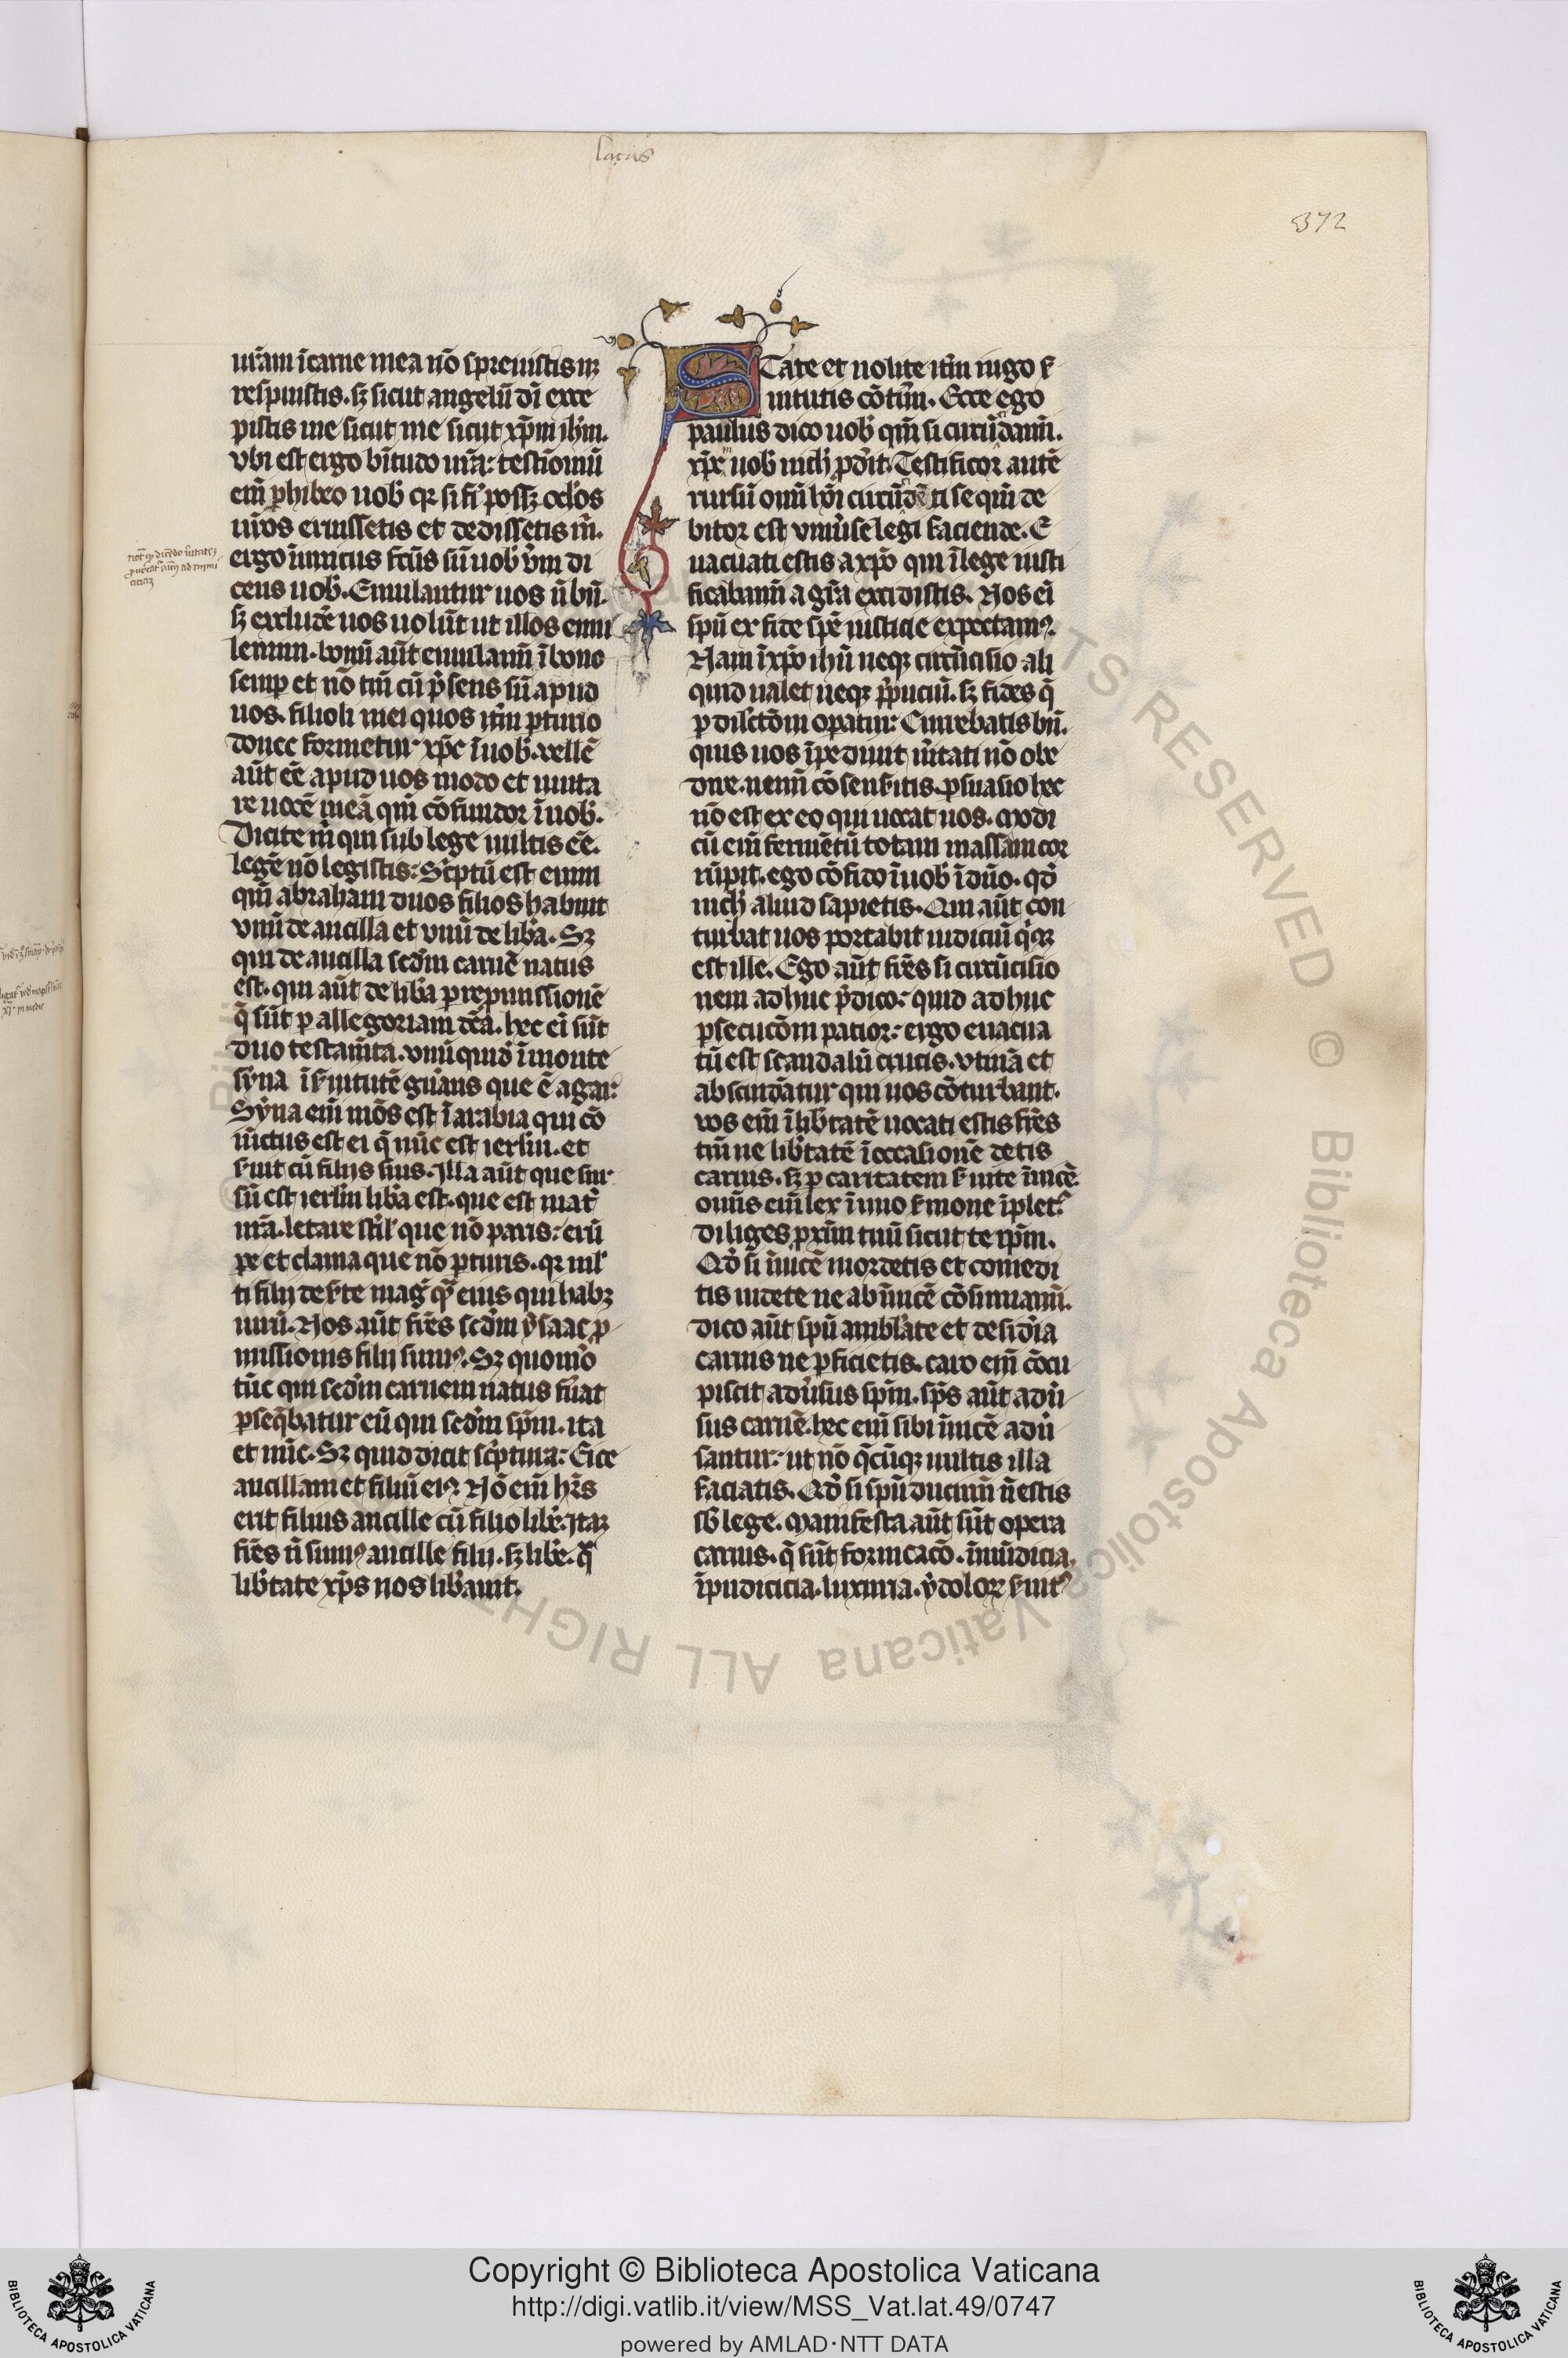 latas
372
ur̄am ī carne mea nō spreuistis nꝫ
respuistis. sꝫ sicut angelū dī exce
pistis me sicut me sicut xp̄m ih̄m.
vbi est ergo bt̄itudo ur̄a: testīoniū
em̄ phibeo uob̓ qꝛ si fi̓ possꝫ oclo̓s
ur̄os eruissetis et dedissetis m̄.
ergo īimicus fc̄us sū uob̓ ūm di
cens uob̓. Emulantur uos n̄ bn̄.
sꝫ excludē uos uolūt ut illos emu
lemini. bonū aūt emulamī ī bono
semp et nō tm̄ cū p̄sens sū apud
uos. filioli mei quos itm̄ pturio
donec formetur xp̄c ī uob̓. vellē
aūt eē apud uos modo et muta
re uocē meā qm̄ cōfundor ī uob̓.
Dicite m̄ qui sub lege uultis eē.
legē nō legistis: Sc̓ptū est enim
qm̄ abraham duos filios habuit
vnū de ancilla et vnū de liba̓. Sꝫ
qui de ancilla scd̓m carnē natus
est. qui aūt de liba̓ p repmissionē
q̄ sūt p allegoriam dc̄a. hec ei̓ sūt
duo testam̄ta. vnū quid̓ ī monte
syna ī s̓uitutē gn̄ans que ē agar:
Syna em̄ mōs est ī arabia qui cō
iūctus est ei q̄ nūc est ierlm̄. et
s̓uit cū filijs suis. Illa aūt que sur
sū est ierlm̄ liba̓ est. que est mat̓
nr̄a. letare stil̓ que nō paris: erū
pe et clama que nō pturis. qꝛ mlt̓
ti filij des̓te mag̓ qᷓ eius qui habꝫ
uirū. Nos aūt fr̄es scd̓m ysaac p
missionis filij sumꝰ. Sꝫ quom̓o
tūc qui scd̓m carnem natus fūat
pseq̄batur eū qui scd̓m sp̄m. ita
et nūc. Sꝫ quid dicit sc̓ptura: Eice
ancillam et filiū eiꝰ. Nō em̄ hr̄s
erit filius ancille cū filio libe̓. Itaꝫ
fr̄es n̄ sumꝰ ancille filij. sꝫ libe̓. qᷓ
lib̓tate xp̄s nos lib̓auit.
State et nolite itm̄ iugo s̓
uitutis cōtini̓. Ecce ego
paulus dico uob̓ qm̄ si circūdamī.
xp̄c uob̓ nich̓ pd̓it. Testificor autē
rursū omī hōi circūdēti se qm̄ de
bitor est vniu̓se legi faciende. E
uacuati estis a xp̄o qui ī lege iusti
ficabimī a gr̄a excidistis. Nos ei̓
spū ex fide spē iusticie expectamꝰ.
Nam ī xp̄o ihū neqꝫ circūcisio ali
quid ualet neqꝫ p̄puciū. sꝫ fides q̄
p dilc̄tōm opatur: Currebatis bn̄.
quis uos īpediuit ūitati nō obe
dire. nemī cōsens̓itis. psuasio hec
nō est ex eo qui uocat uos. modi
cū em̄ fermētū totam massam cor
rūpit. ego cōfido ī uob̓ ī dn̄o. qd̓
nich̓ aliud sapietis. Qui aūt con
turbat uos portabit iudiciū q̓cꝫ
est ille. Ego aūt fr̄es si circūcisio
nem adhuc p̄dico: quid adhuc
psecucōm patior: ergo euacua
tū est scandalū crucis. vtinā et
abscindātur qui uos cōturbant.
vos em̄ ī lib̓tatē uocati estis fr̄es
tm̄ ne lib̓tatē ī occasionē detis
carnis. sꝫ p caritatem s̓uite īuicē.
omīs em̄ lex ī uno s̓mone īplet̓:
diliges pxīm tuū sicut te ip̄m.
Qd̓ si īuicē mordetis et comedi
tis uidete ne ab īuicē cōsumamī.
dico aūt spū ambl̓ate et desid̓ia
carnis ne pficietis. caro em̄ cōcu
piscit adūsus sp̄m. sp̄s aūt adū
sus carnē. hec em̄ sibi īuicē adū
santur: ut nō q̄cūqꝫ uultis illa
faciatis. Qd̓ si spū ducimī n̄ estis
sb̓ lege. Manifesta aūt sūt opera
carnis. q̄ sūt fornicacō. īmūdicia.
īpudicicia. luxuria. ydoloꝝ s̓uitꝰ
ALL RIGHTS RESERVED © Biblioteca Apostolica Vaticana
Copyright © Biblioteca Apostolica Vaticana
http://digi.vatlib.it/view/MSS_Vat.lat.49/0747
powered by AMLAD·NTT DATA
BIBLIOTECA APOSTOLICA VATICANA
BIBLIOTECA APOSTOLICA VATICANA